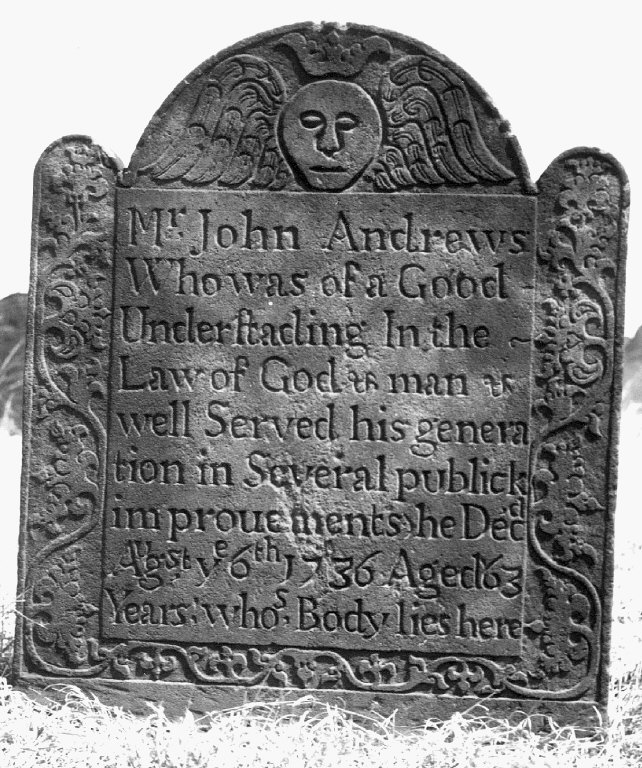 Mr John Andrews
Who was of a Good
Underſtading In the
Law of God & man &
well Served his genera
tion in Several publick
improuements he Decd
Augst ye 6th 1736 Aged 63
Years: whos Body lies here